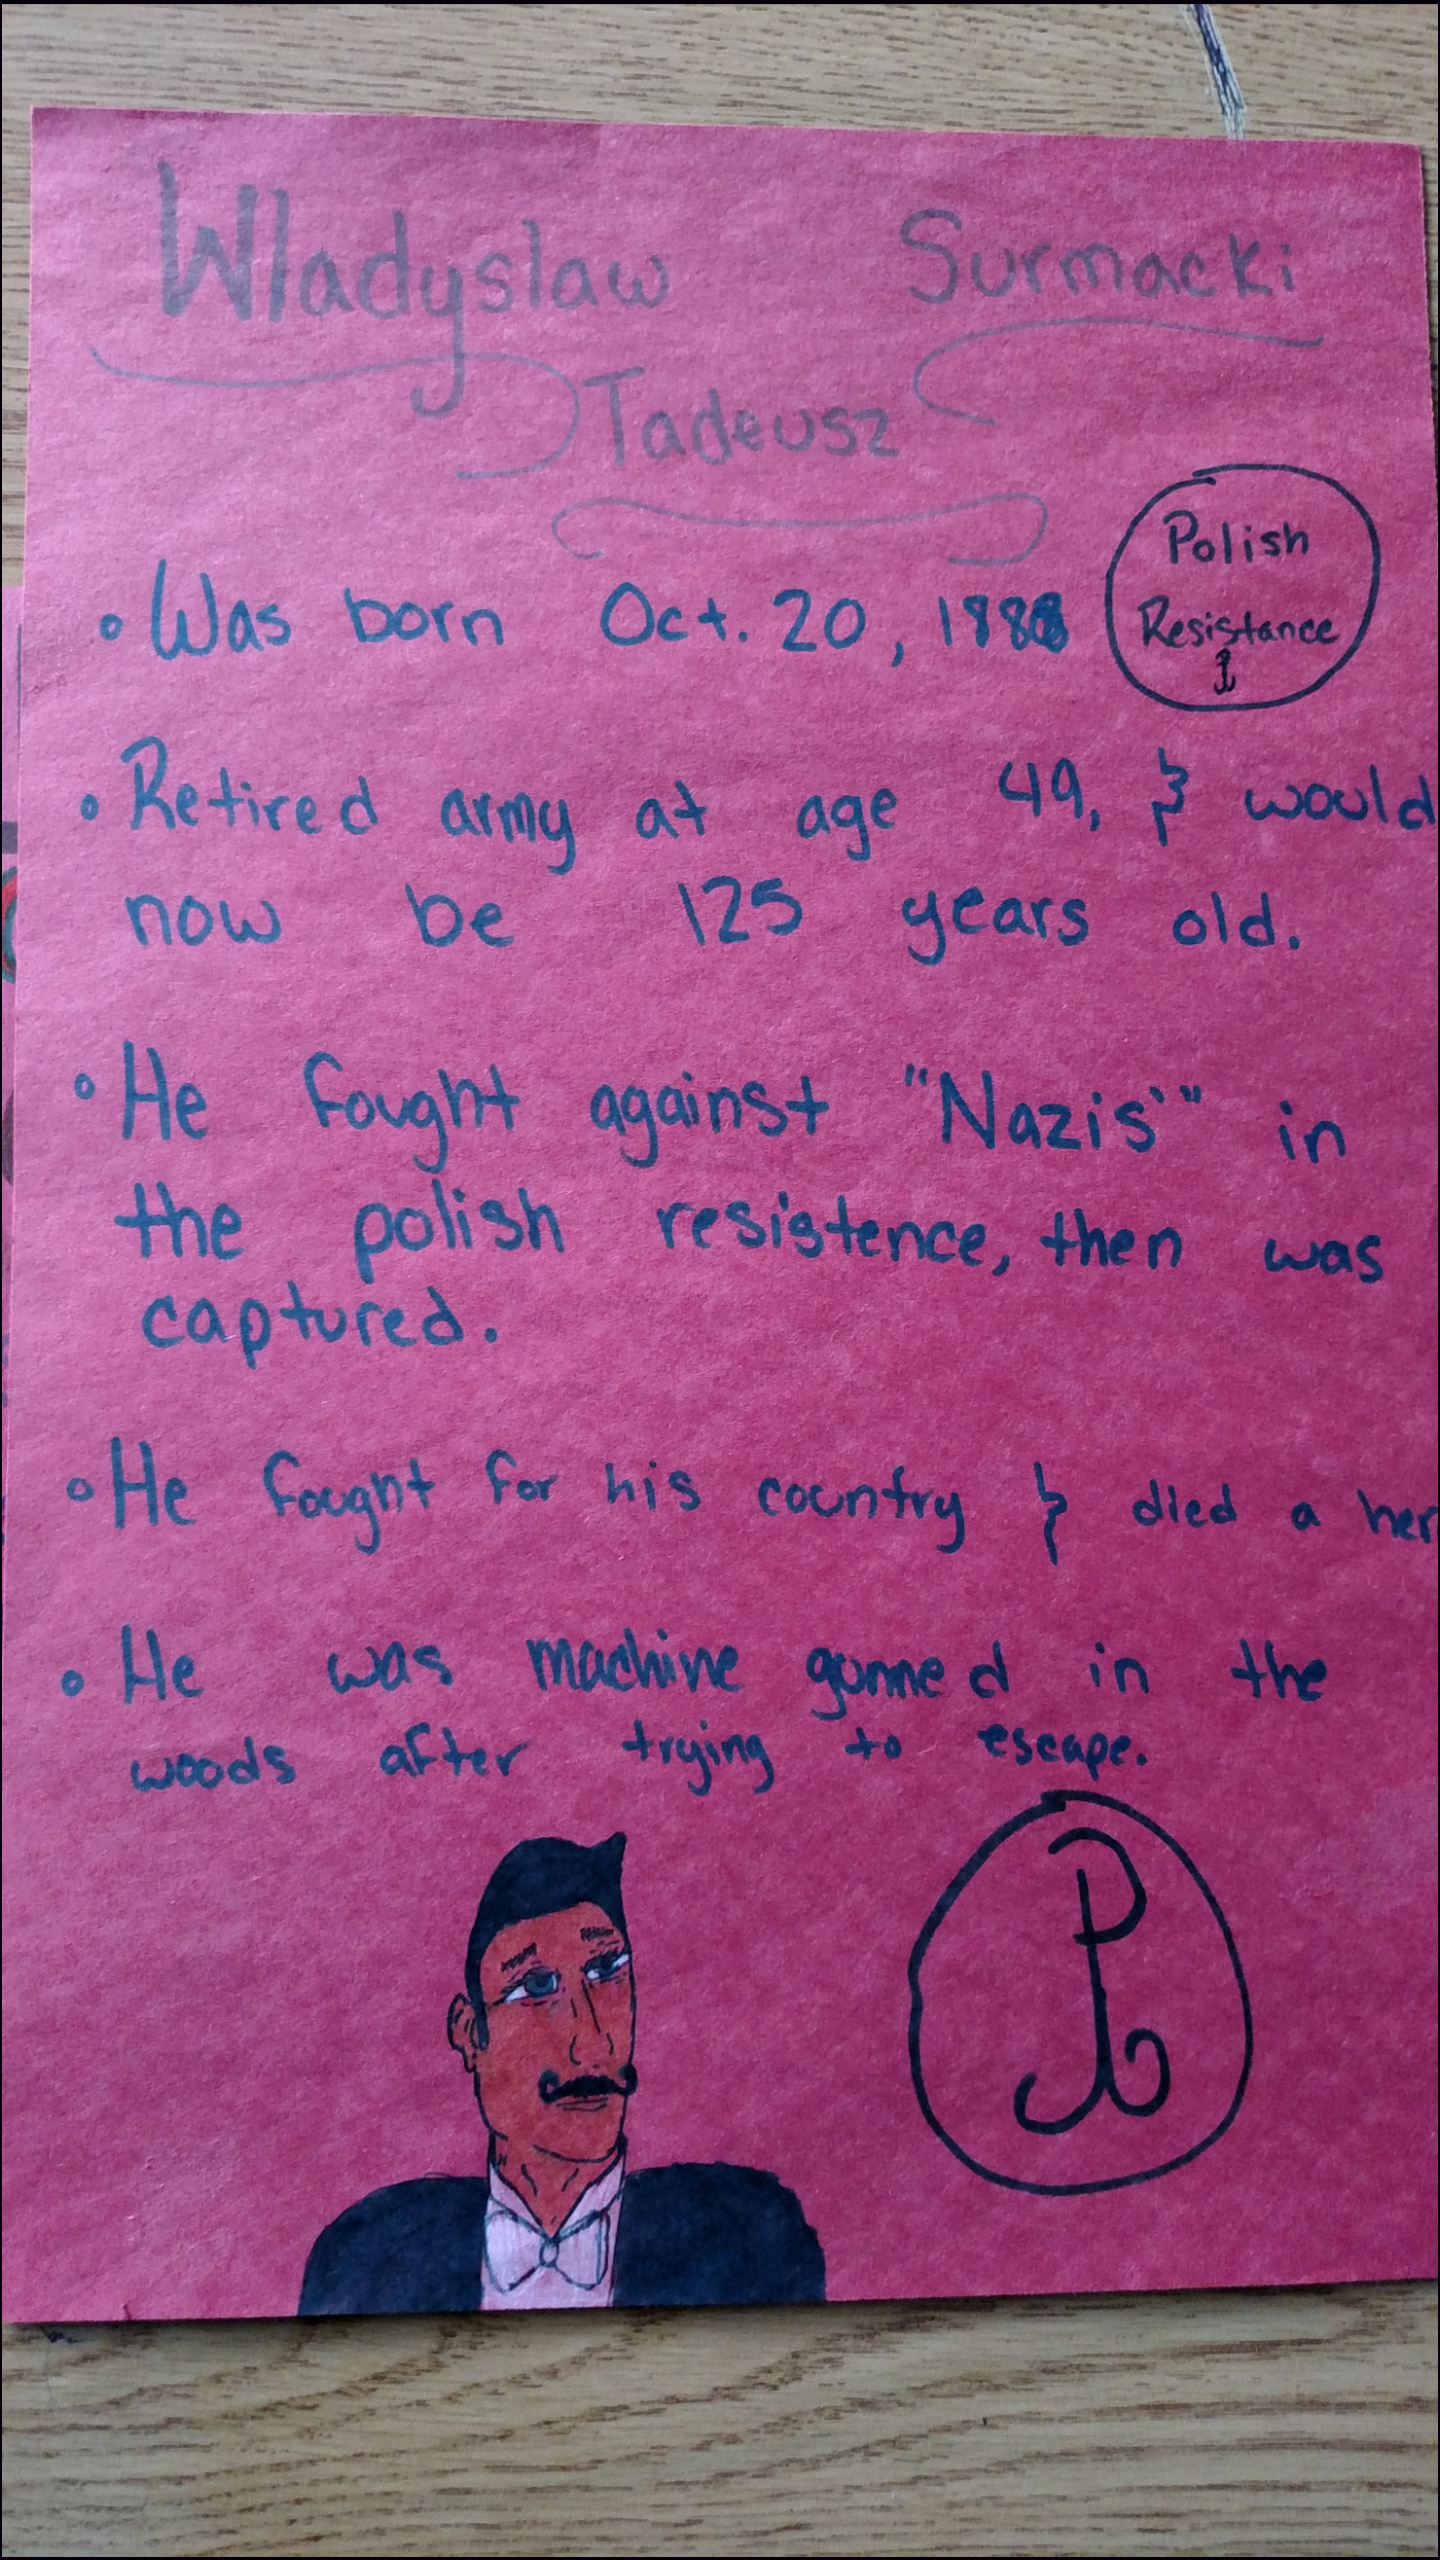 Wladyslaw Surmacki
Tadeusz
Polish
Resistance
• Was born Oct. 20, 1888
• Retired army at age 49, & would
now be 125 years old.
• He fought against "Nazis'" in
the polish resistence, then was
captured.
• He fought for his country & died a her
• He was machine gunned in the
woods after trying to escape.
P